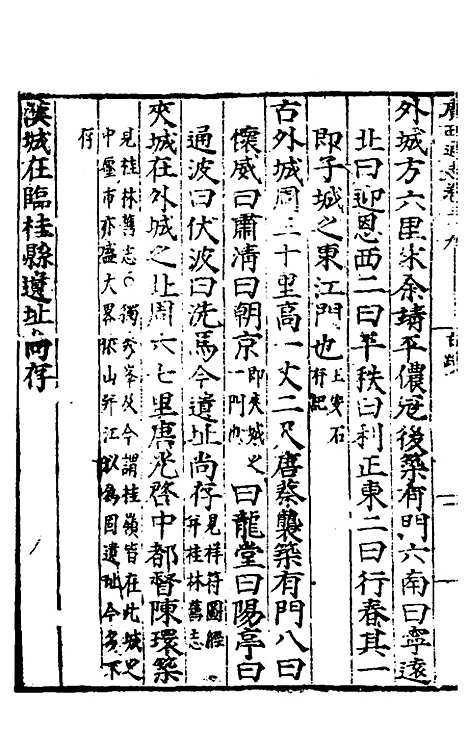 廣西通志卷三十九
外城方六里宋余靖平儂冦後築有門六南曰寧遠
北曰迎恩西二曰平秩曰利正東二曰行春其一
即子城之東江門也王安石有記
古外城周三十里高一丈二尺唐蔡襲築有門八曰
懷威曰肅清曰朝京即夾城之一門也曰龍堂曰陽亭曰
通波曰伏波曰洗馬今遺址尚存見祥符圖經并桂林舊志
夾城在外城之北周六七里唐光啓中都督陳環築
見桂林舊志○獨秀峯及今謂桂嶺皆在此城之
中廛市亦盛大畧依山并江以爲固遺址今多不
存
漢城在臨桂縣遺址尚存